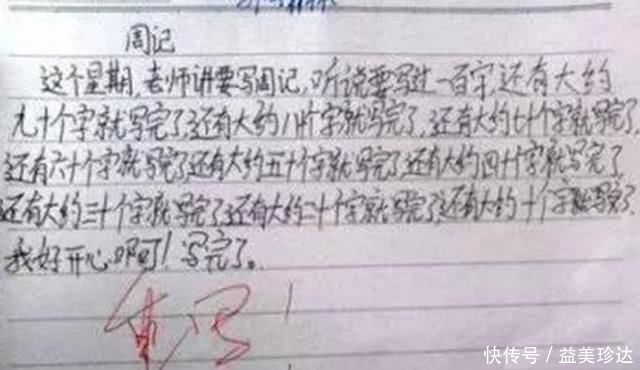 周记
这个星期,老师讲要写周记,听说要写过一百字,还有大约
九十个字就写完了,还有大约八十个字就写完了,还有大约七十个字就写完了
还有六十个字就写完了还有大约五十个字就写完了还有大约四十个字就写完了
还有大约三十个字就写完了还有大约二十个字就写完了还有大约十个字就写完了
我好开心啊!写完了。
重写!
快传号/益美珍达